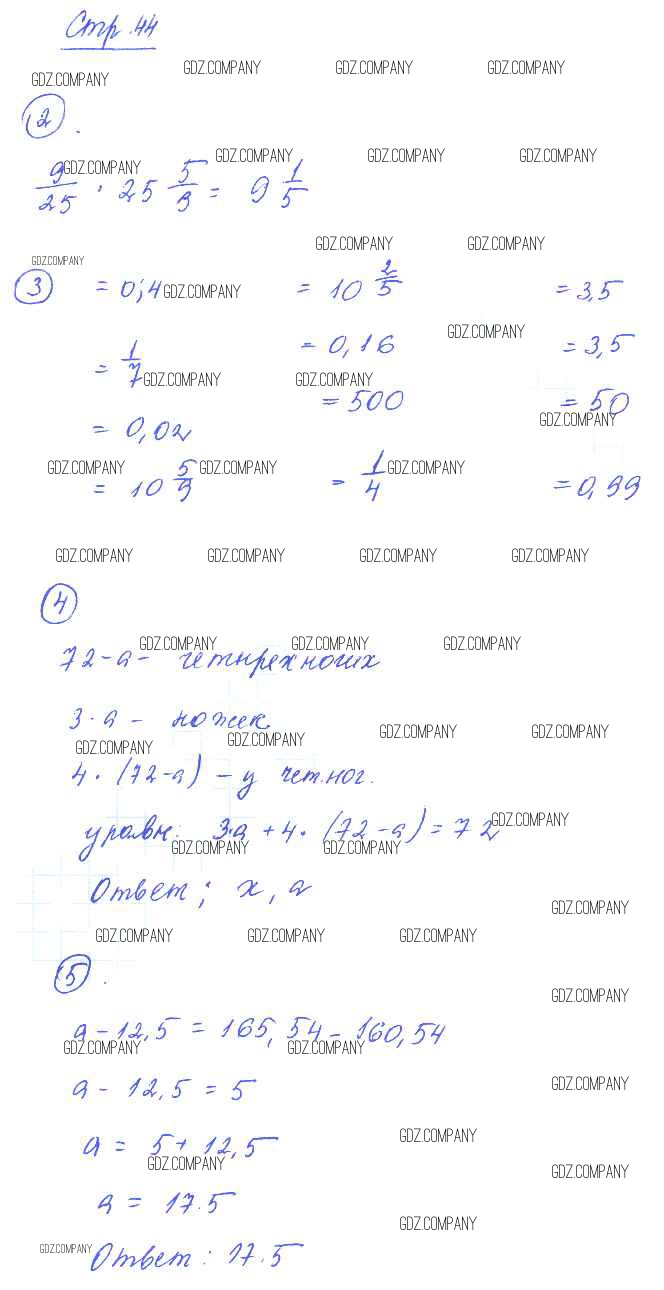 Стр. 44
GDZ.COMPANY GDZ.COMPANY GDZ.COMPANY GDZ.COMPANY
2.
GDZ.COMPANY GDZ.COMPANY GDZ.COMPANY GDZ.COMPANY
9/25 · 25 5/9 = 9 1/5
GDZ.COMPANY GDZ.COMPANY GDZ.COMPANY
3 = 0,4 GDZ.COMPANY = 10 2/5 = 3,5
= 1/7 = 0,16 GDZ.COMPANY = 3,5
GDZ.COMPANY GDZ.COMPANY
= 0,02 = 500 = 50
GDZ.COMPANY
GDZ.COMPANY GDZ.COMPANY GDZ.COMPANY
= 10 5/9 = 1/4 = 0,99
GDZ.COMPANY GDZ.COMPANY GDZ.COMPANY GDZ.COMPANY
4
GDZ.COMPANY GDZ.COMPANY GDZ.COMPANY
72-а- четырехногих
3·а - ножек
GDZ.COMPANY GDZ.COMPANY GDZ.COMPANY GDZ.COMPANY
4·(72-а) - у чет.ног.
GDZ.COMPANY
уравн: 3·а + 4·(72-а) = 72
GDZ.COMPANY GDZ.COMPANY
Ответ; х, а
GDZ.COMPANY
GDZ.COMPANY GDZ.COMPANY GDZ.COMPANY
5.
GDZ.COMPANY
а - 12,5 = 165,54 - 160,54
GDZ.COMPANY GDZ.COMPANY
а - 12,5 = 5
GDZ.COMPANY
а = 5 + 12,5
GDZ.COMPANY
GDZ.COMPANY GDZ.COMPANY
а = 17.5
GDZ.COMPANY
GDZ.COMPANY Ответ: 17.5